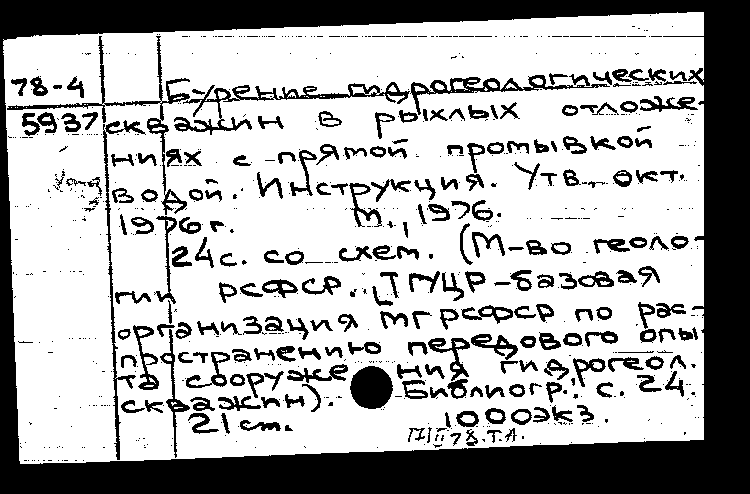 78-4 Бурение гидрогеологических
5937 скважин в рыхлых отложе-
ниях с прямой промывкой
водой. Инструкция. Утв. окт.
1976г. М., 1976.
24с. со схем. (М-во геоло-
гии РСФСР. ТГУЦР-базовая
организация МГ РСФСР по рас-
пространению передового опы-
та сооруже ния гидрогеол.
скважин). Библиогр.: с. 24.
21 см. 1000экз.
78.Т.А.